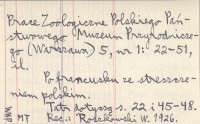 Prace Zoologiczne Polskiego Pań-
stwowego Muzeum Przyrodnicze-
go (Warszawa) 5, nr 1: 22-51,
il.
Po francusku ze streszcze-
niem polskim.
Tatr dotyczą s. 22 i 45-48.
MT Rec.: Roszkowski W. 1926.